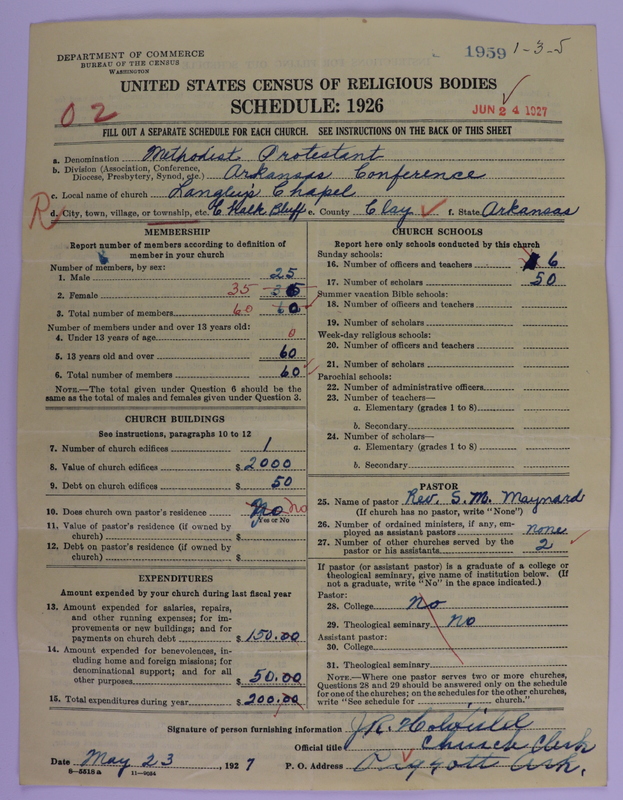 1959 1-3-5
DEPARTMENT OF COMMERCE
BUREAU OF THE CENSUS
WASHINGTON
UNITED STATES CENSUS OF RELIGIOUS BODIES
SCHEDULE: 1926
02
JUN 24 1927
FILL OUT A SEPARATE SCHEDULE FOR EACH CHURCH. SEE INSTRUCTIONS ON THE BACK OF THIS SHEET
a. Denomination Methodist Protestant
b. Division (Association, Conference, Diocese, Presbytery, Synod, etc.) Arkansas Conference
c. Local name of church Langley's Chapel
R d. City, town, village, or township, etc. Chalk Bluff e. County Clay f. State Arkansas
MEMBERSHIP
Report number of members according to definition of
member in your church
Number of members by sex:
1. Male 25
2. Female 35
3. Total number of members 60 60
Number of members under and over 13 years old:
4. Under 13 years of age 0
5. 13 years old and over 60
6. Total number of members 60
NOTE.—The total given under Question 6 should be the
same as the total of males and females given under Question 3.
CHURCH BUILDINGS
See instructions, paragraphs 10 to 12
7. Number of church edifices 1
8. Value of church edifices $ 2000
9. Debt on church edifices $ 50
10. Does church own pastor's residence No no
Yes or No
11. Value of pastor's residence (if owned by
church) $
12. Debt on pastor's residence (if owned by
church) $
EXPENDITURES
Amount expended by your church during last fiscal year
13. Amount expended for salaries, repairs,
and other running expenses; for im-
provements or new buildings; and for
payments on church debt $ 150.00
14. Amount expended for benevolences, in-
cluding home and foreign missions; for
denominational support; and for all
other purposes $ 50.00
15. Total expenditures during year $ 200.00
CHURCH SCHOOLS
Report here only schools conducted by this church
Sunday schools:
16. Number of officers and teachers 6
17. Number of scholars 50
Summer vacation Bible schools:
18. Number of officers and teachers
19. Number of scholars
Week-day religious schools:
20. Number of officers and teachers
21. Number of scholars
Parochial schools:
22. Number of administrative officers
23. Number of teachers—
a. Elementary (grades 1 to 8)
b. Secondary
24. Number of scholars—
a. Elementary (grades 1 to 8)
b. Secondary
PASTOR
25. Name of pastor Rev. S. M. Maynard
(If church has no pastor, write "None")
26. Number of ordained ministers, if any, em-
ployed as assistant pastors none
27. Number of other churches served by the
pastor or his assistants 2
If pastor (or assistant pastor) is a graduate of a college or
theological seminary, give name of institution below. (If
not a graduate, write "No" in the space indicated.)
Pastor:
28. College no
29. Theological seminary No
Assistant pastor:
30. College
31. Theological seminary
NOTE.—Where one pastor serves two or more churches,
Questions 28 and 29 should be answered only on the schedule
for one of the churches; on the schedules for the other churches,
write "See schedule for church."
Signature of person furnishing information J.R. Holifield
Official title Church Clerk
Date May 23, 1927 P. O. Address Piggott Ark.
8-5518a 11-9034